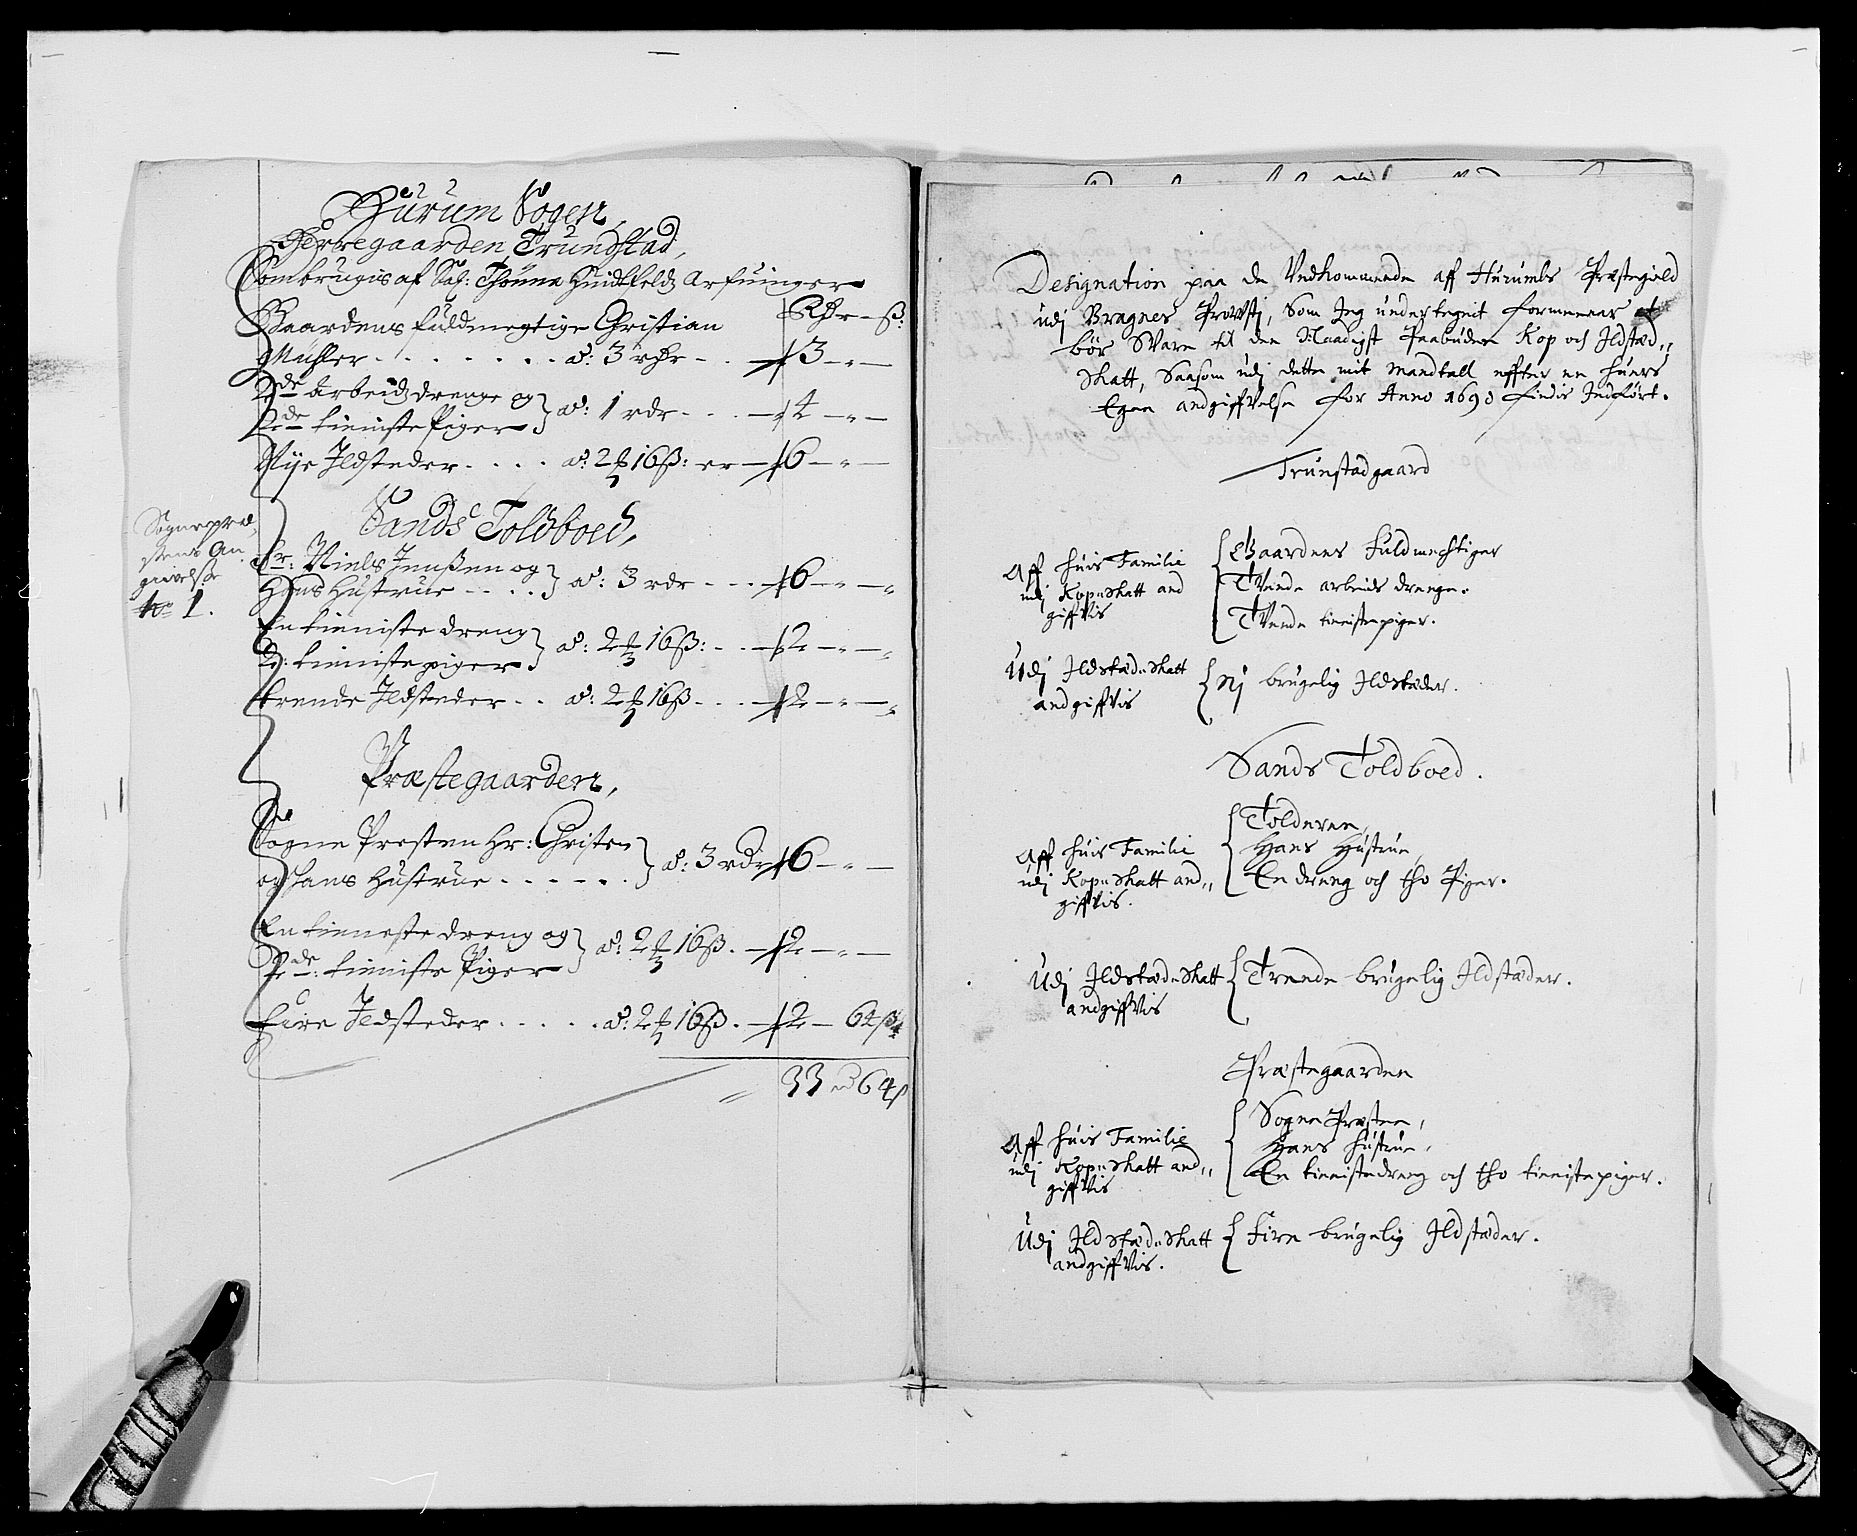 Hurum Sogen,
Herregaarden Trundstad,
Som brugis af Sal: Thønne Huidtfeldz Arfuinger
Rdr - ß:
Gaardens fuldmegtige Christian
Mühler . . . . . . . á: 3 rdr - . . 3 - " -
2de Arbeidzdrenge og
2de tieniste Piger } á: 1 rdr - . . . 4 - " -
Nije Ildsteder . . . . á: 2/3 16ß: er - 6 - " -
Sands Toldboed,
Sognepræ-
stens An
givelse
No 1.
Sr: Niels Jenßen og
Hans Hustrue - . . . } á: 3 rdr . . . 6 - " - "
En tieniste dreng
2: tieniste piger } á: 2/3 16ß: . . . 2 - " - "
trende Ildsteder . . á: 2/3 16ß . . . 2 - " - "
Præstegaarden,
Sogne Presten Hr: Christen
og hans Hustrue . . . . . . } á: 3 rdr 6 - " -
En tieneste dreng og
2de: tieniste Piger } á: 2/3 16ß . - 2 - " -
Fire Ildsteder . . . . . á: 2/3 16ß . - 2 - 64ß
33 rd 64ß
Designation paa de Vedkommende aff Hurumbs Præstegield
udj Bragnes Provstj, Som Jeg undertegnit formeenar at
bør Svare til den Naadigst Paabudene Kop och Ildstæd,,
Skatt, Saasom udj dette mit Mandtall effter en huers
Egen andgiffvelse for Anno 1690 findis Indført.
Trunstadgaard
Aff huis Familie
udj Kop"skatt and
giffvis
{ Gaardens Fuldmechtiger
Tvende arbeids drenge.
Tvende tienistepiger.
Udj Ildstæd"skatt
andgiffvis
{ Nj brugelig Ildstæder.
Sands Toldboed.
Aff huis Familie
udj Kop"skatt and,,
giffvis.
{ Tolderen,
Hans Hustrue,
En dreng och tho Piger.
Udj Ildstæd"skatt
andgiffvis
{ Trende brugelig Ildstæder.
Præstegaarden
Aff huis Familie
udj Kop"skatt and,,
giffvis
{ Sogne Præsten,
Hans Hustrue,
En tienistedreng och tho tienistepiger.
Udj Ildstæd"skatt
andgiffvis.
{ Fire brugelig Ildstæder.